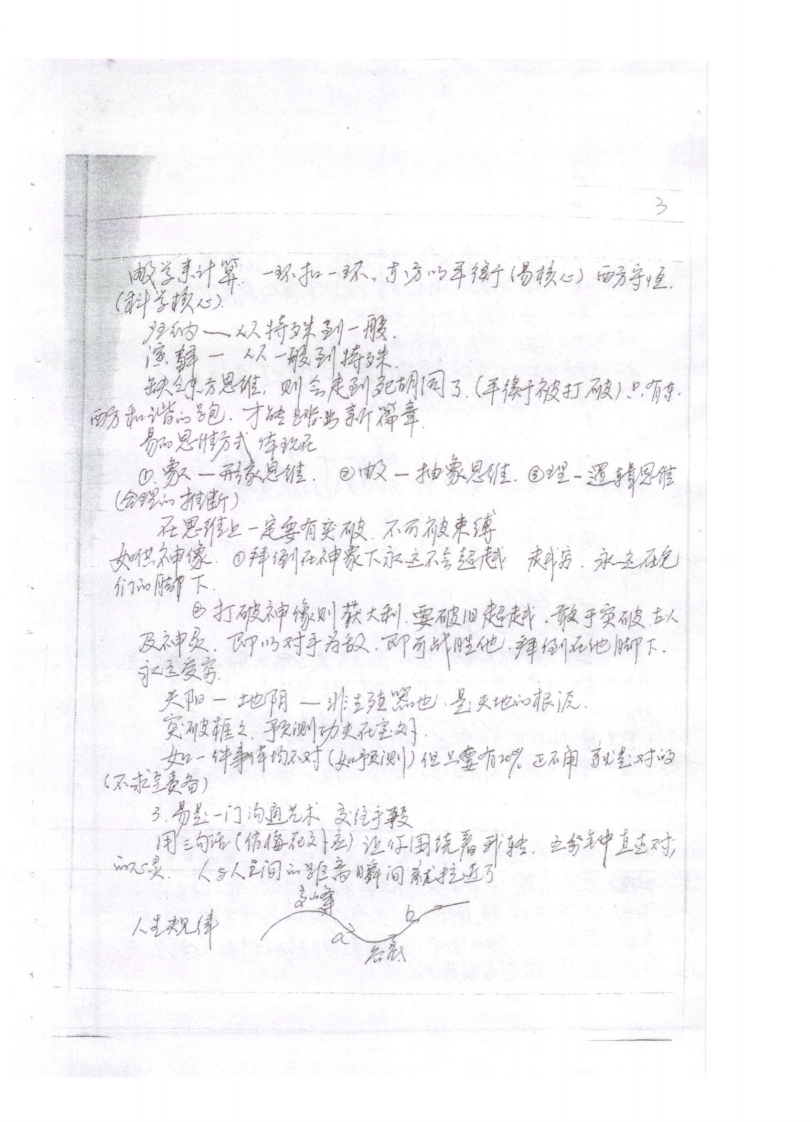 3
由数学来计算. 一环扣一环、东方的平衡(易核心) 西方守恒.
(科学核心).
归纳——从特殊到一般.
演绎— 从一般到特殊.
缺乏东方思维, 则会走到死胡同了.(平衡被打破)只有东
西方和谐的 , 才能 出新篇章.
易的思维方式 体现在
①. 象 — 形象思维. ② — 抽象思维. ③理 — 逻辑思维
(合理的推断)
在思维上一定要有突破、不可被束缚
如供神像. ①拜倒在神象下永远不会超越 越穷. 永远在它
们的脚下.
② 打破神像则获大利. 要破旧超越. 敢于突破古人
及神灵. 即以对手为敌. 即可战胜他. 拜倒在他脚下.
永远受穷.
天阳 — 地阴 — 生殖器也. 是天地的根源.
突破框 . 预测功夫在 .
如一件事体均不对(如预测) 但只要有20% 正确 就是对的
(不求全责备)
3. 易是一门沟通艺术
用三句话( 梅花 ) 让你围绕着我转. 五分钟直达对方
的心灵. 人与人之间的距离瞬间就拉近了
人生规律
高峰
a
b
谷底